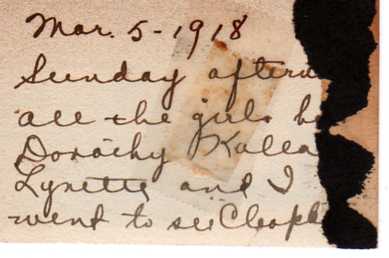 Mar. 5-1918
Sunday aftern
all the girls he
Dorothy Kalla
Lynette and I
went to see Chapl